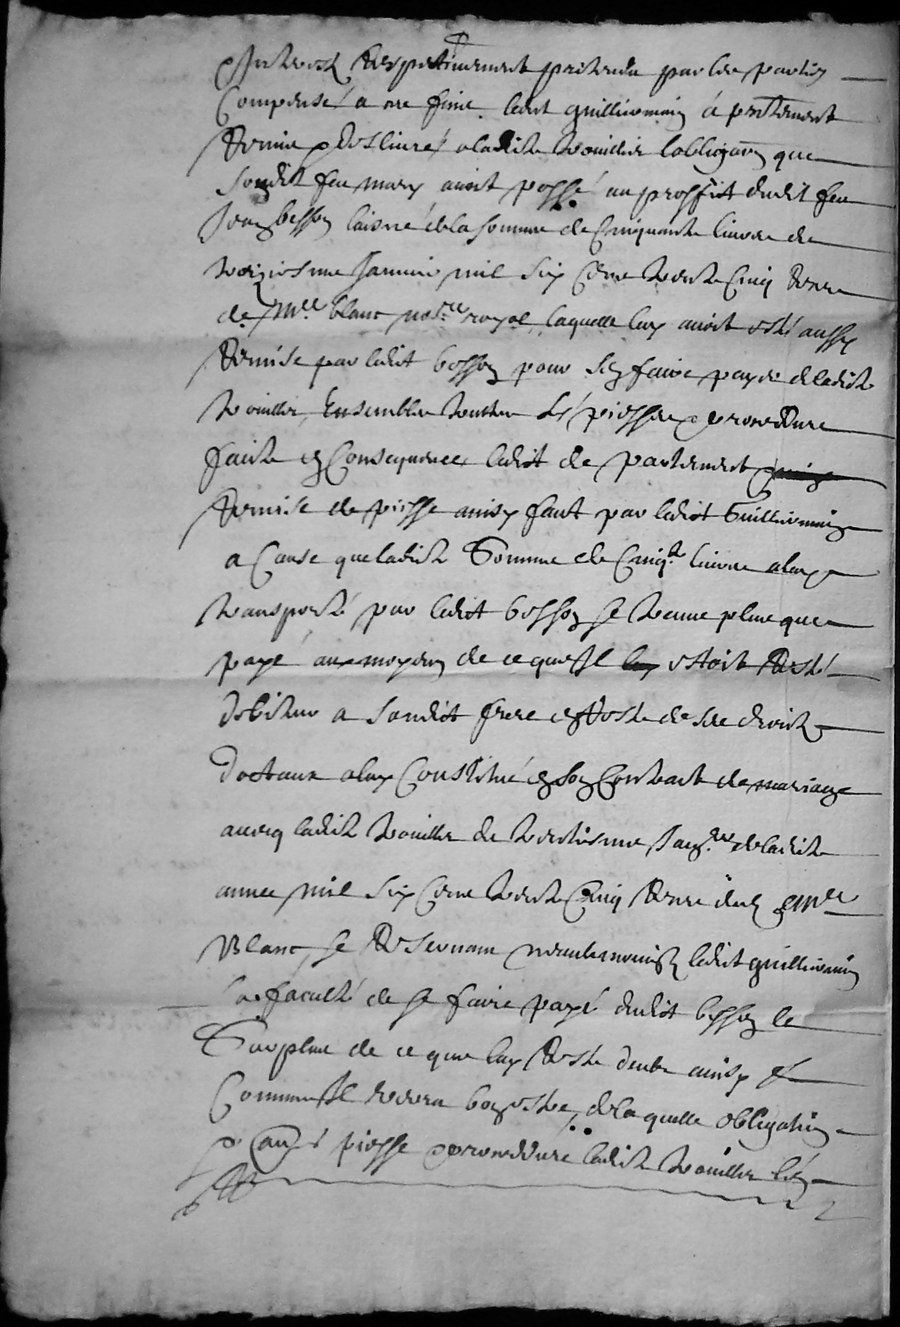 Interest Respectivement pretendu par les parties
Compensé a ces fins ledit guilliermin a presentement
Remis & deslivré a ladite trouillier lobligaon que
Sondit feu mary avoit passé au proffit dudit feu
Jean besson laisné de la somme de Cinquante livres du
treziesme Janvier mil six Cens trente Cinq Receu
de Mre blanc nore royal laquelle luy avoit esté aussy
Remise par ledit besson pour sen faire payer de ladite
trouillier Ensemble toutes les piesses & procedure
faite en Consequence ledit de partement
Remise de piesse ainsy faict par ledict Guilliermin
a Cause que ladite Somme de Cinqte livres a luy
transporté par ledit besson se treuve plus que
payé aux moyens de ce quesll estoit Resté
debiteur a sondit frere en Reste de ses droits
doctaux a luy Constitué en son Contract de mariage
avecq ladite trouillier du trentiesme Jan.re de ladite
annee mil six Cens trente Cinq Receu dud Mre
Blanc se Reservant neantmoings ledit guilliermin
la faculté de se faire payé dudit besson le
Surplus de ce que luy Reste deub ainsy &
Comme Il verra bon estre, de la quelle obligation
piesse & procedure ladite trouillier